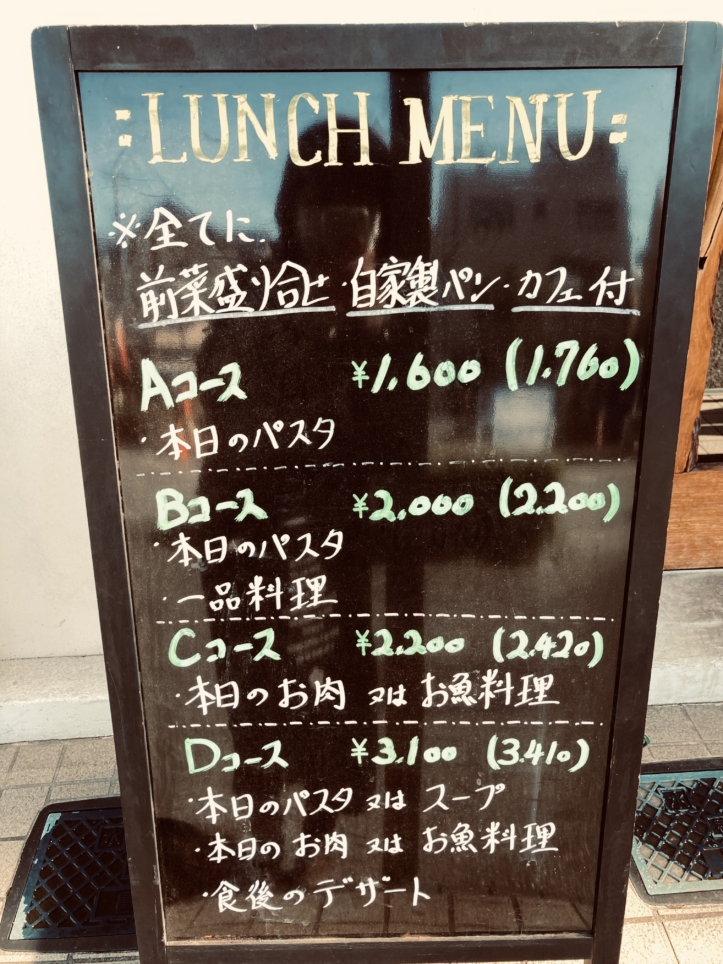 LUNCH MENU
※全てに
前菜盛り合せ・自家製パン・カフェ付
Aコース ¥1,600 (1,760)
・本日のパスタ
Bコース ¥2,000 (2,200)
・本日のパスタ
・一品料理
Cコース ¥2,200 (2,420)
・本日のお肉 又は お魚料理
Dコース ¥3,100 (3,410)
・本日のパスタ 又は スープ
・本日の お肉 又は お魚料理
・食後のデザート